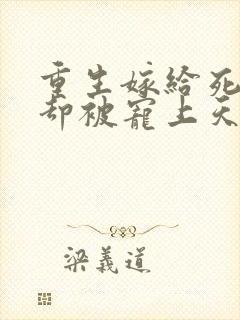 重生嫁给死
却被宠上天
梁義道